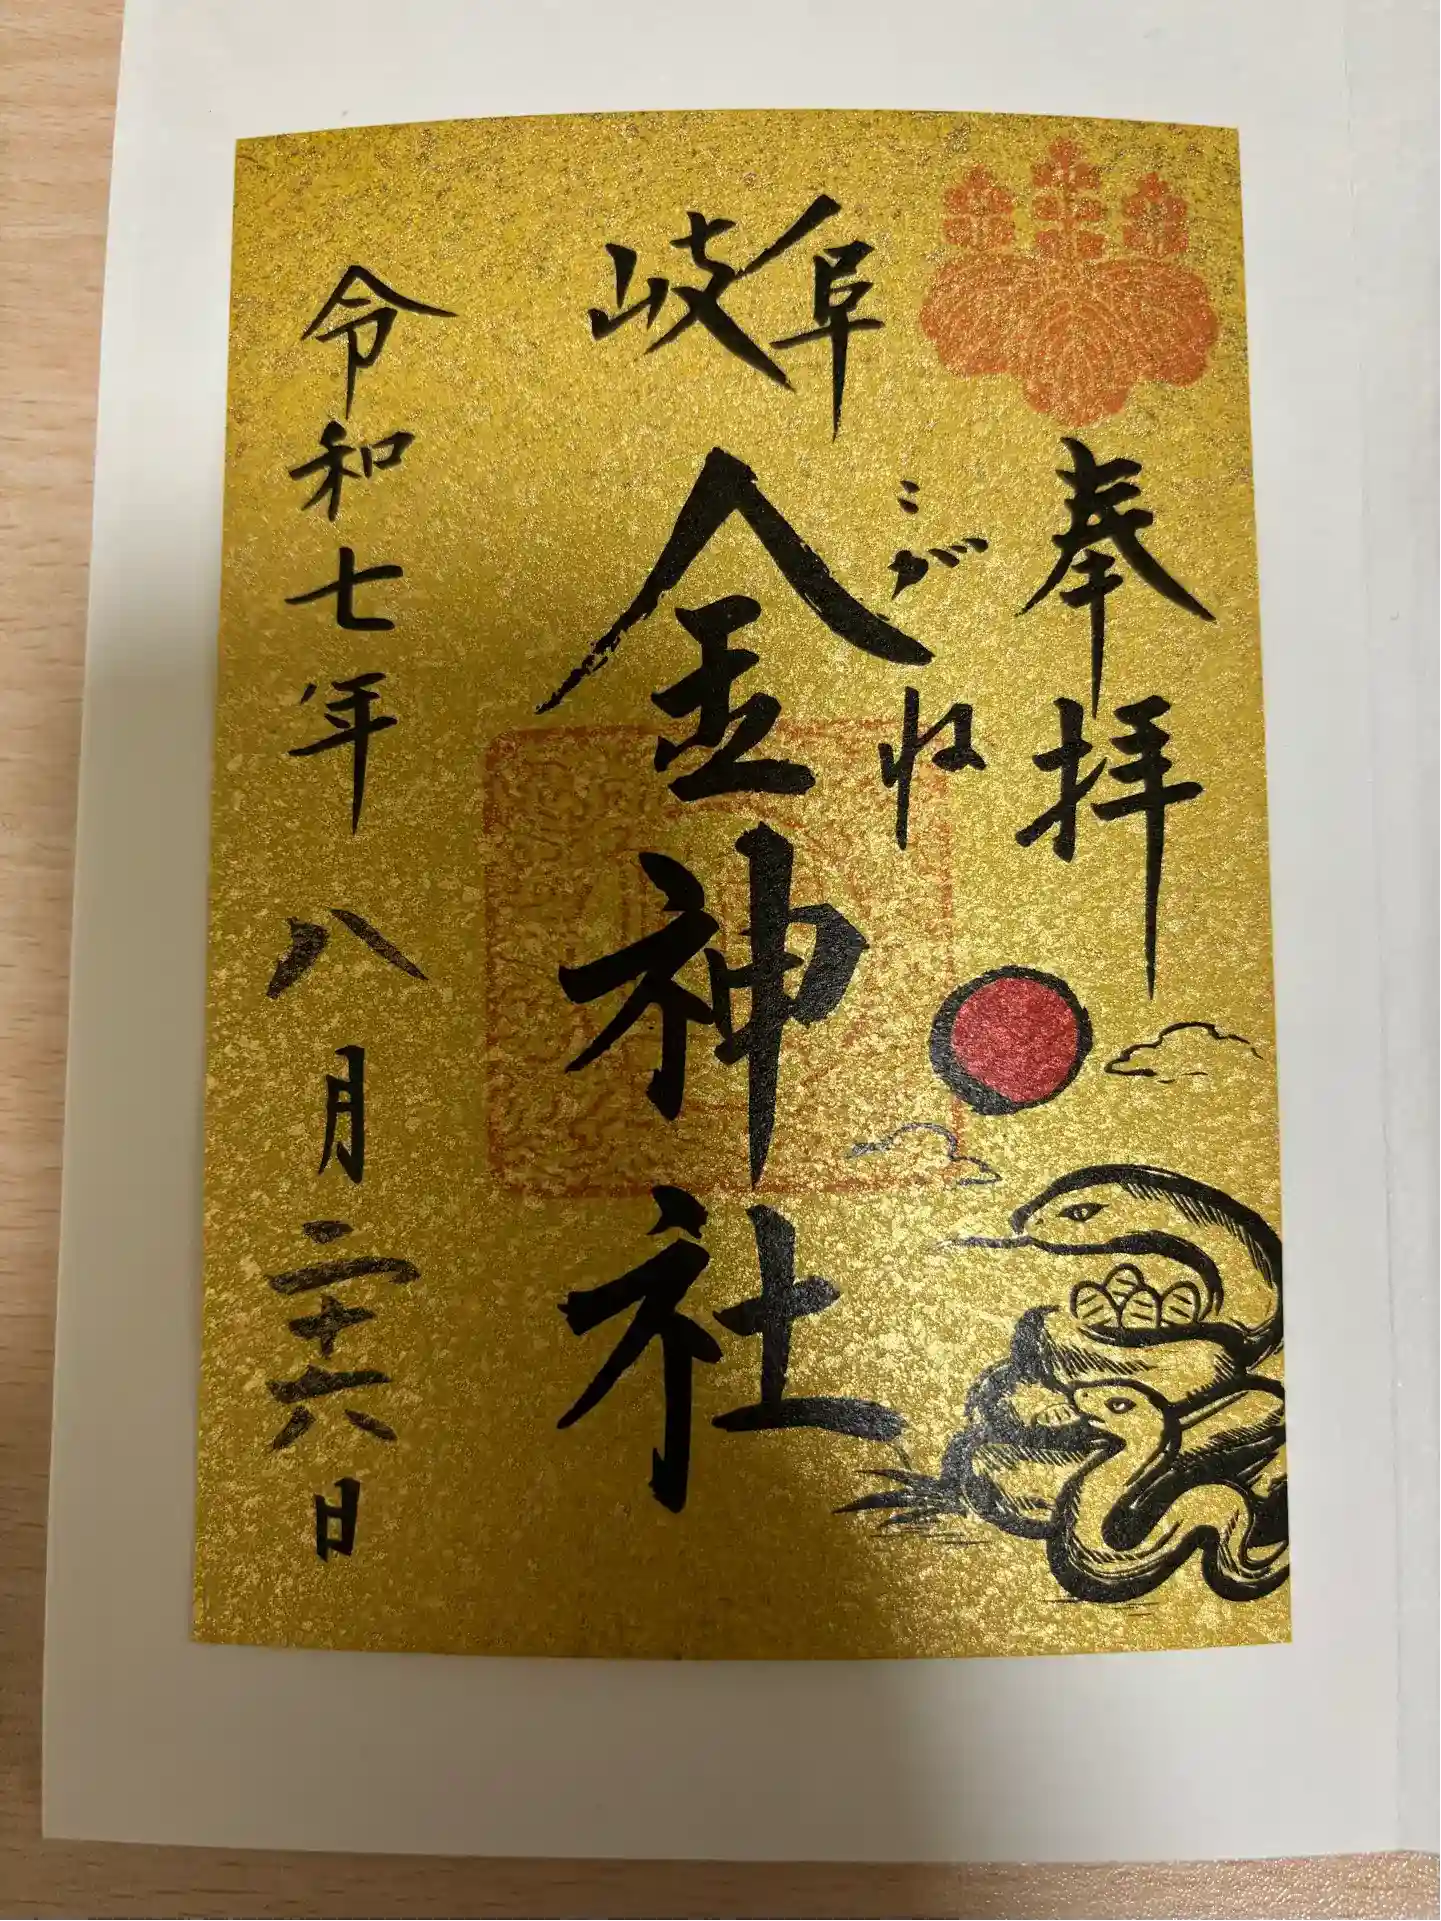 奉拝
こがね
岐阜
金神社
令和七年八月二十六日